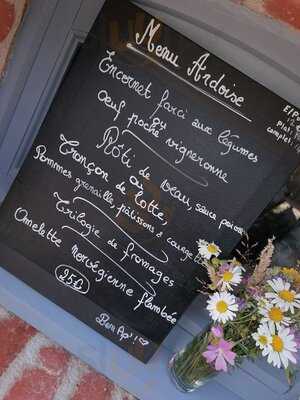 Menu Ardoise
Encornet farci aux légumes
ou
Oeuf poché vigneronne
Rôti de veau, sauce poivre
ou
Tronçon de lotte,
Pommes grenaille, pâtissons & courgettes
Trilogie de fromages
Omelette norvégienne flambée
25€
Bon Ap'!
E/P
plat
complet